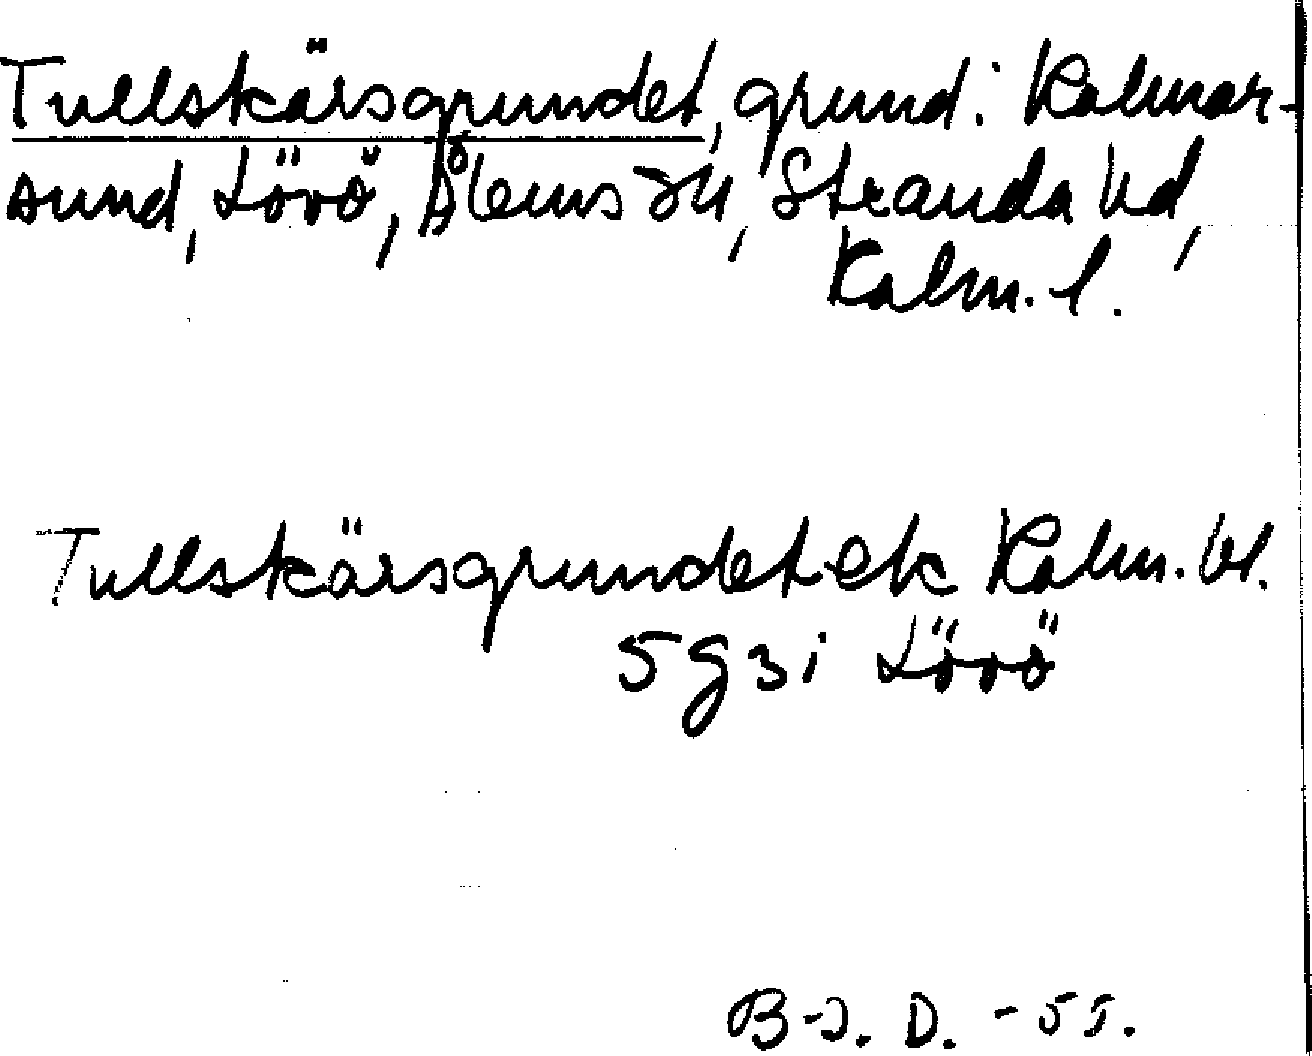 Tullskärsgrundet, grund i Kalmar-
sund, Lövö, Ålems sn, Stranda hd,
Kalm. l.
Tullskärsgrundet ek Kalm. bl.
5 g 3 i Lövö
B-J. D. -55.